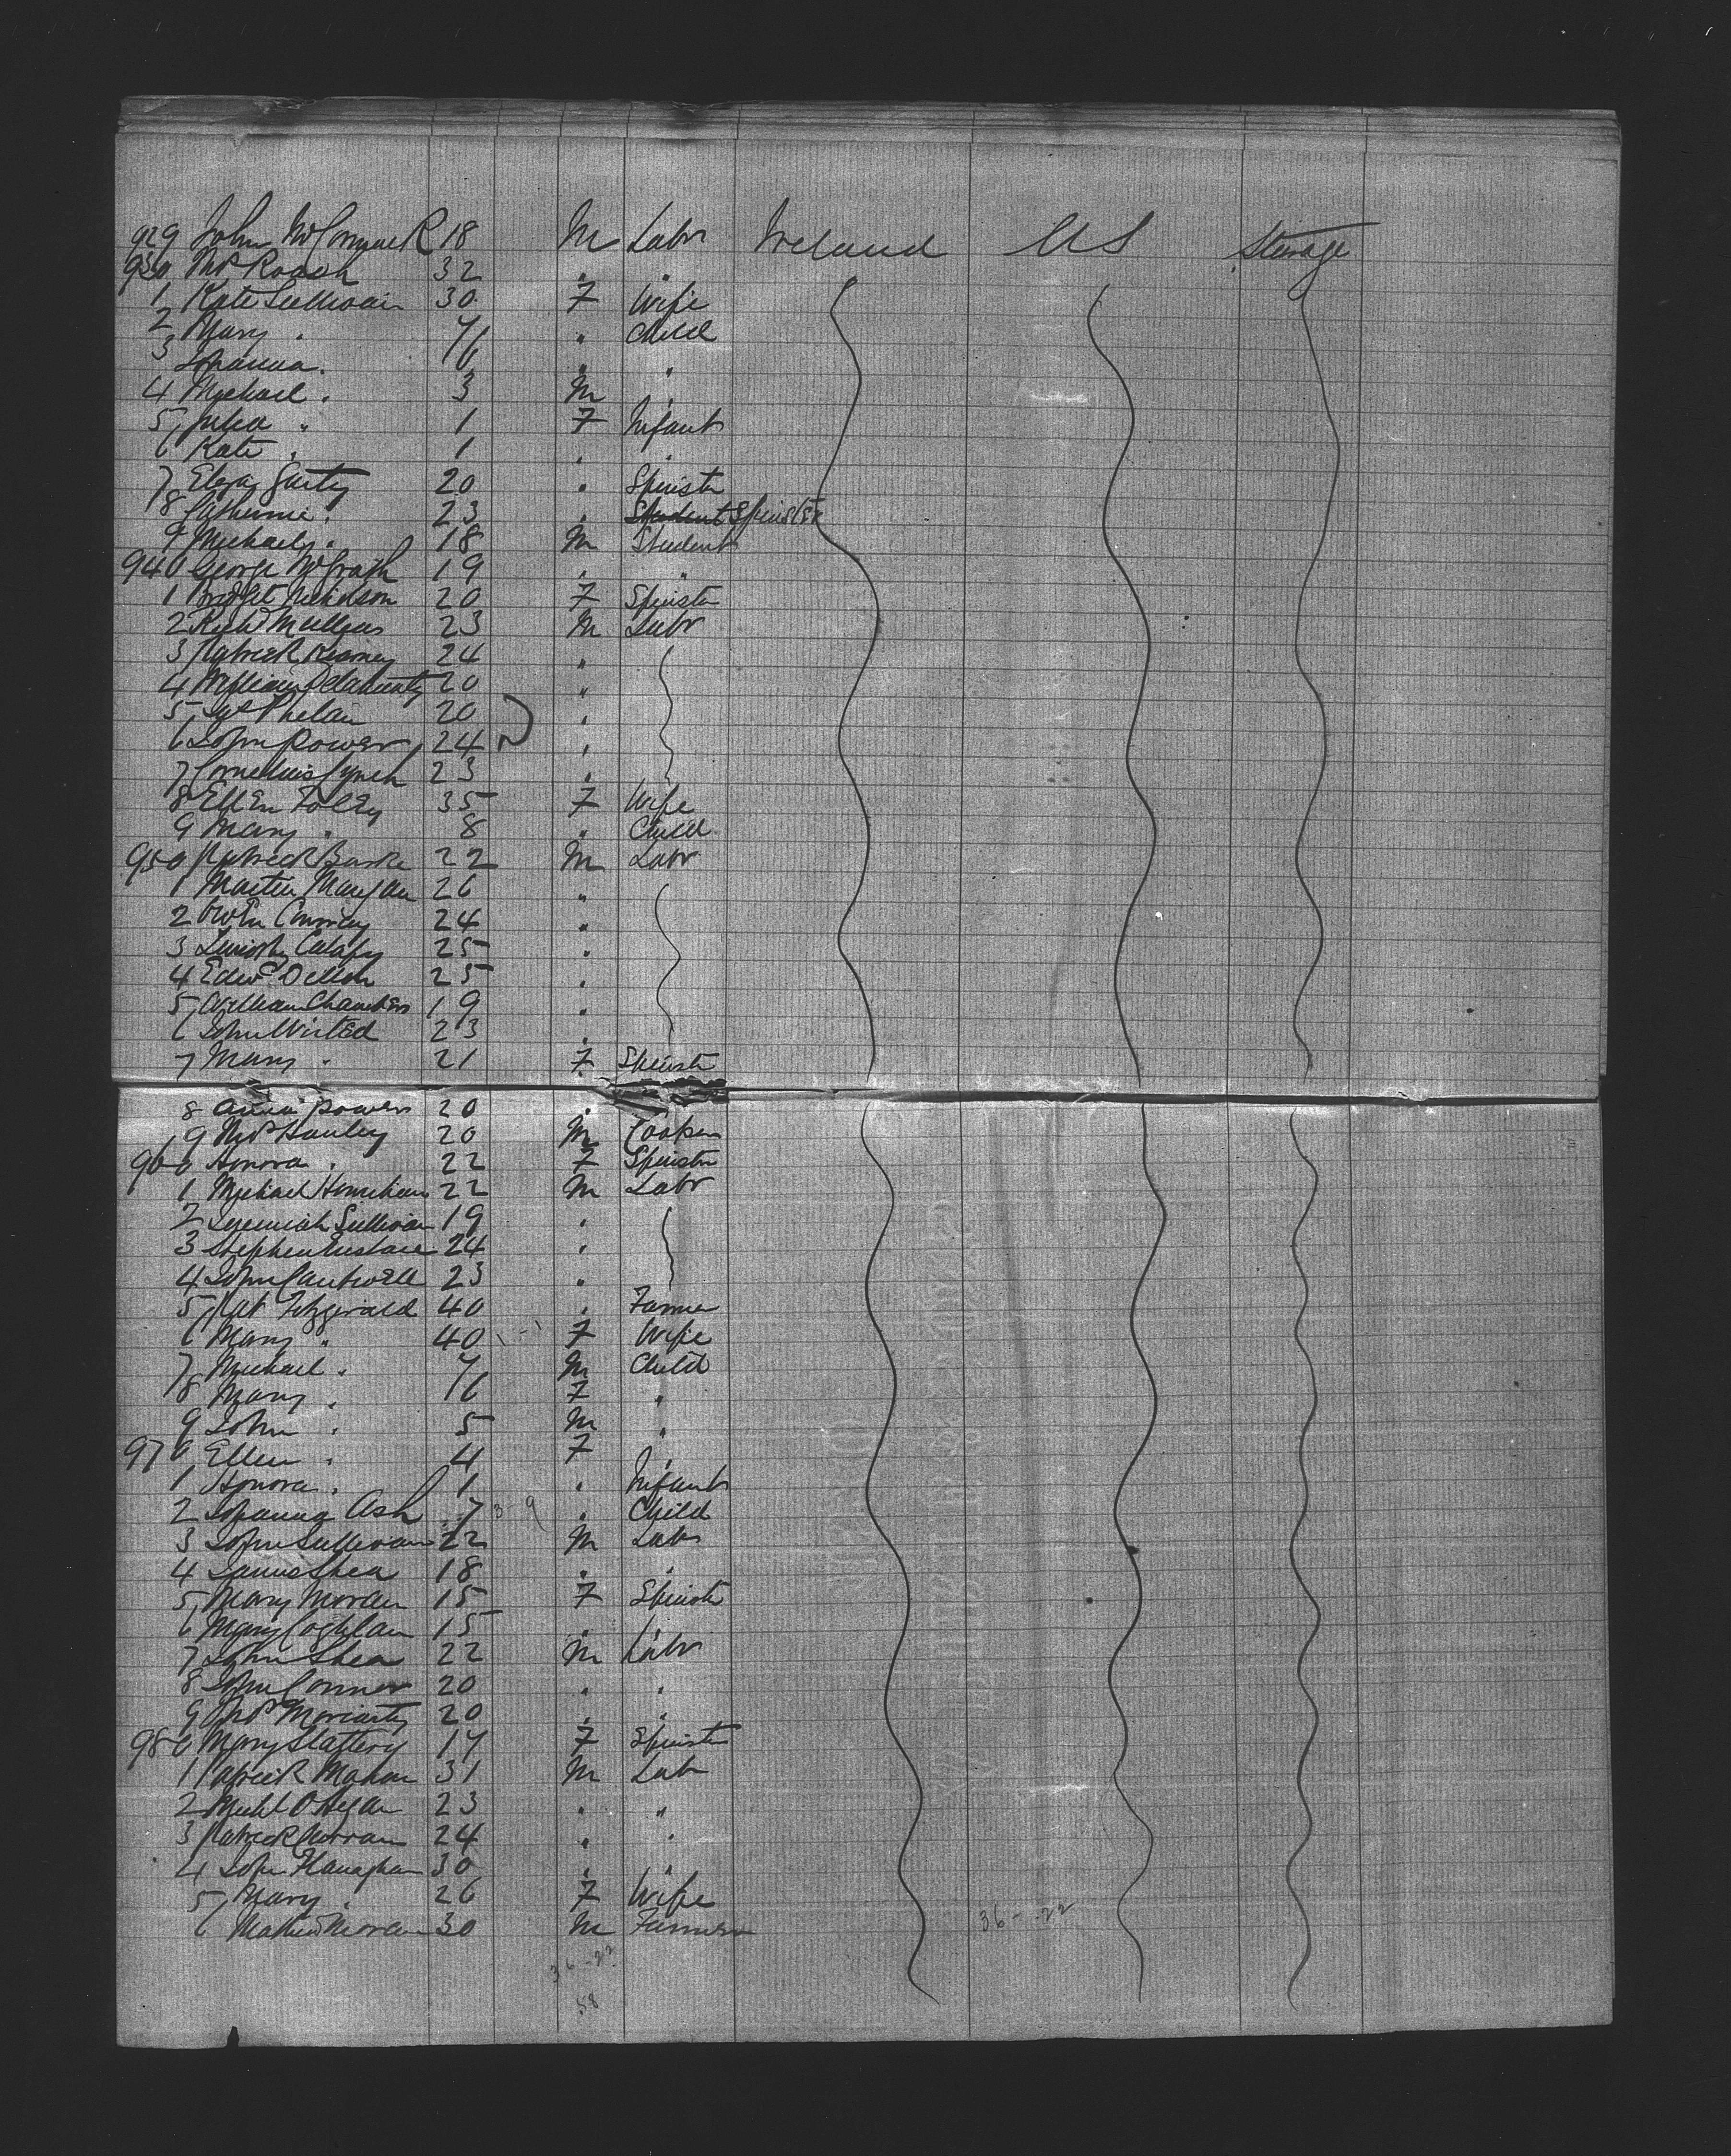 929 John McCormack 18 M Labr Ireland US Steerage
930 Thos Roach 32 " "
1 Kate Sullivan 30 F Wife
2 Mary " 7 " Child
3 Johanna " 6 " "
4 Michael " 3 M "
5 Julia " 1 F Infant
6 Kate " 1 " "
7 Eliza Garty 20 " Spinstr
8 Catherine " 23 " Student Spinster
9 Michael " 18 M Student
940 George McGrath 19 " "
1 Bridget Nicholson 20 F Spinstr
2 Richd Mullins 23 M Labr
3 Patrick Kearney 24 "
4 William Delahunty 20 "
5 Jas Phelan 20 "
6 John Power 24 "
7 Cornelius Lynch 23 "
8 Ellen Foley 35 F Wife
9 Mary " 8 " Child
950 Patrick Burke 22 M Labr
1 Martin Mangan 26 "
2 Owen Conway 24 "
3 Timothy 25 "
4 Edwd Dillon 25 "
5 William Chambers 19 "
6 John Wisted 23 "
7 Mary " 21 F Spinstr
8 Annie Power 20 "
9 Thos Hanley 20 M Cooper
960 Honora " 22 F Spinstr
1 Michael Hourihan 22 M Labr
2 Jeremiah Sullivan 19 "
3 Stephen Eustace 24 "
4 John Cantwell 23 "
5 Pat Fitzgerald 40 " Farmer
6 Mary " 40 F Wife
7 Michael " 7 M Child
8 Mary " 6 F "
9 John " 5 M "
970 Ellen " 4 F "
1 Honora " 1 " Infant
2 Johanna Ash 7 3-9 " Child
3 John Sullivan 22 M Labr
4 James Shea 18 " "
5 Mary Moran 15 F Spinstr
6 Mary Coghlan 15 " "
7 John Shea 22 M Labr
8 John Connor 20 " "
9 Thos Moriarty 20 " "
980 Mary Slattery 17 F Spinstr
1 Patrick Mahon 31 M Labr
2 Michl O Regan 23 " "
3 Patrick Curran 24 " "
4 John Flanaghan 30 " "
5 Mary " 26 F Wife
6 Mathew Moran 30 M Farmer
36--22
36-22
58